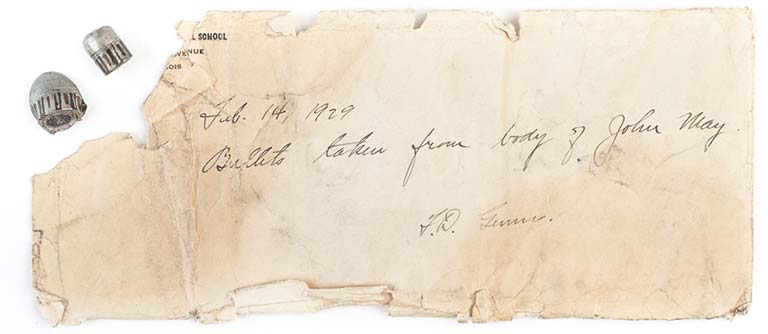 L SCHOOL
VENUE
OIS
Feb. 14, 1929
Bullets taken from body of John May.
F.D.